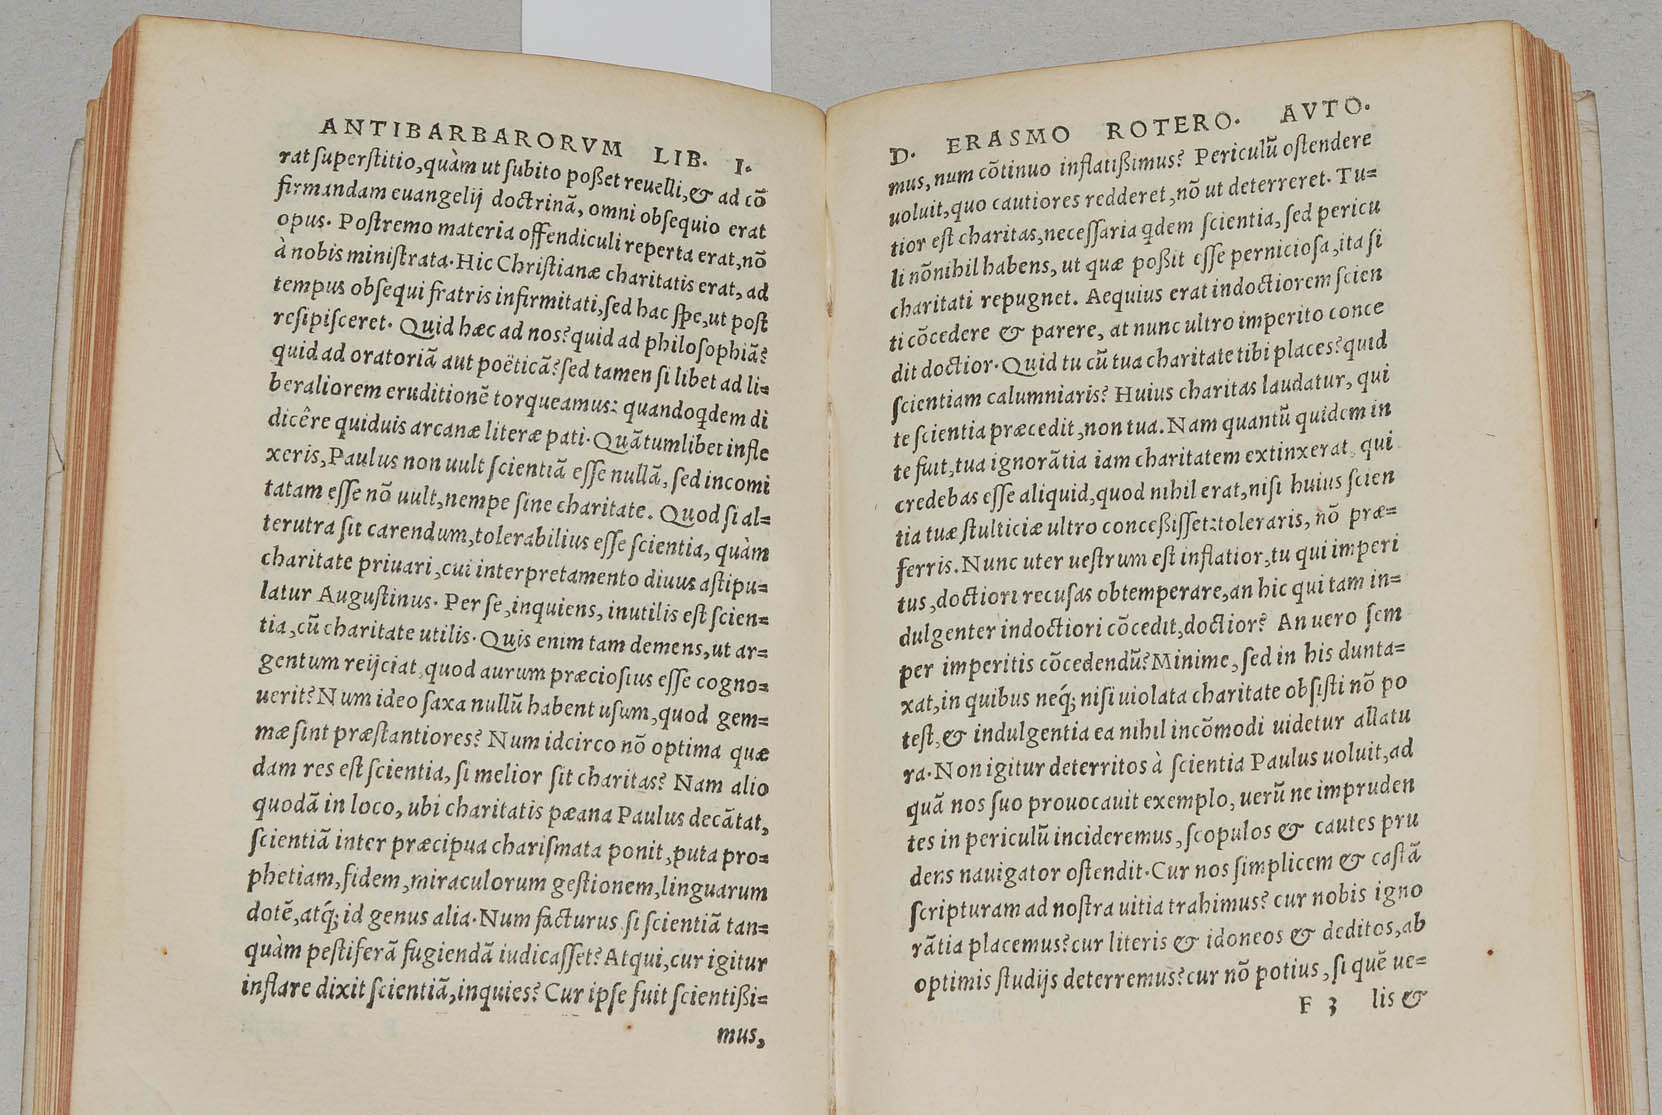 ANTIBARBARORVM LIB. I.
rat superstitio, quàm ut subito poßet reuelli, & ad cõ
firmandam euangelij doctrinã, omni obsequio erat
opus. Postremo materia offendiculi reperta erat, nõ
à nobis ministrata. Hic Christianæ charitatis erat, ad
tempus obsequi fratris infirmitati, sed hac spe, ut post
resipisceret. Quid hæc ad nos? quid ad philosophiã?
quid ad oratoriã aut poëticã? sed tamen si libet ad li=
beraliorem eruditionẽ torqueamus: quandoq̃dem di
dicêre quiduis arcanæ literæ pati. Quãtumlibet infle
xeris, Paulus non uult scientiã esse nullã, sed incomi
tatam esse nõ uult, nempe sine charitate. Quod si al=
terutra sit carendum, tolerabilius esse scientia, quàm
charitate priuari, cui interpretamento diuus astipu=
latur Augustinus. Per se, inquiens, inutilis est scien=
tia, cũ charitate utilis. Quis enim tam demens, ut ar=
gentum reijciat, quod aurum præciosius esse cogno=
uerit? Num ideo saxa nullũ habent usum, quod gem=
mæ sint præstantiores? Num idcirco nõ optima quæ
dam res est scientia, si melior sit charitas? Nam alio
quodã in loco, ubi charitatis pæana Paulus decãtat,
scientiã inter præcipua charismata ponit, puta pro=
phetiam, fidem, miraculorum gestionem, linguarum
dotẽ, atq́; id genus alia. Num facturus si scientiã tan=
quàm pestiferã fugiendã iudicasset? Atqui, cur igitur
inflare dixit scientiã, inquies? Cur ipse fuit scientißi=
mus,
D. ERASMO ROTERO. AVTO.
mus, num cõtinuo inflatißimus? Periculũ ostendere
uoluit, quo cautiores redderet, nõ ut deterreret. Tu=
tior est charitas, necessaria q̃dem scientia, sed pericu
li nõnihil habens, ut quæ poßit esse perniciosa, ita si
charitati repugnet. Aequius erat indoctiorem scien
ti cõcedere & parere, at nunc ultro imperito conce
dit doctior. Quid tu cũ tua charitate tibi places? quid
scientiam calumniaris? Huius charitas laudatur, qui
te scientia præcedit, non tua. Nam quantũ quidem in
te fuit, tua ignorãtia iam charitatem extinxerat, qui
credebas esse aliquid, quod nihil erat, nisi huius scien
tia tuæ stulticiæ ultro conceßisset: toleraris, nõ præ=
ferris. Nunc uter uestrum est inflatior, tu qui imperi
tus, doctiori recusas obtemperare, an hic qui tam in=
dulgenter indoctiori cõcedit, doctior? An uero sem
per imperitis cõcedendũ? Minime, sed in his dunta=
xat, in quibus neq́; nisi uiolata charitate obsisti nõ po
test, & indulgentia ea nihil incõmodi uidetur allatu
ra. Non igitur deterritos à scientia Paulus uoluit, ad
quã nos suo prouocauit exemplo, uerũ ne impruden
tes in periculũ incideremus, scopulos & cautes pru
dens nauigator ostendit. Cur nos simplicem & castã
scripturam ad nostra uitia trahimus? cur nobis igno
rãtia placemus? cur literis & idoneos & deditos, ab
optimis studijs deterremus? cur nõ potius, si quẽ ue=
F 3 lis &